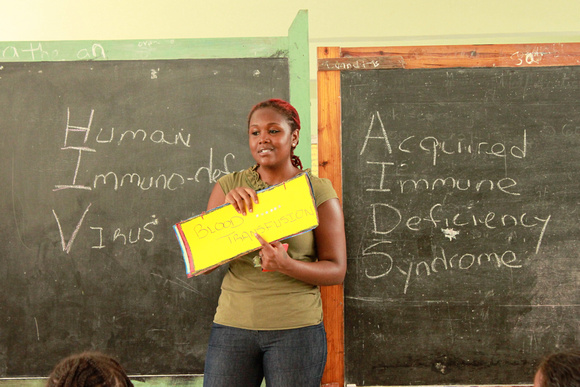 Human
Immuno-def
Virus
BLOOD
TRANSFUSION
Acquired
Immune
Deficiency
Syndrome